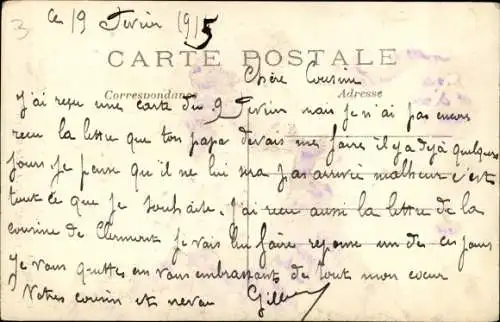 3
ce 19 Fevrier 1915
CARTE POSTALE
Chère Cousine
Correspondance Adresse
J'ai reçu une carte du 9 Fevrier mais je n'ai pas encore
recu la lettre que ton papa devais me faire il y a dejà quelques
jours je pense qu'il ne lui sera pas arrivée malheur c'est
tout ce que je souhaite. J'ai recu aussi la lettre de la
cousine de Clermont je vais lui faire reponse un de ces jours
Je vous quittes en vous embrassants de tout mon coeur
Votres cousin et neveu